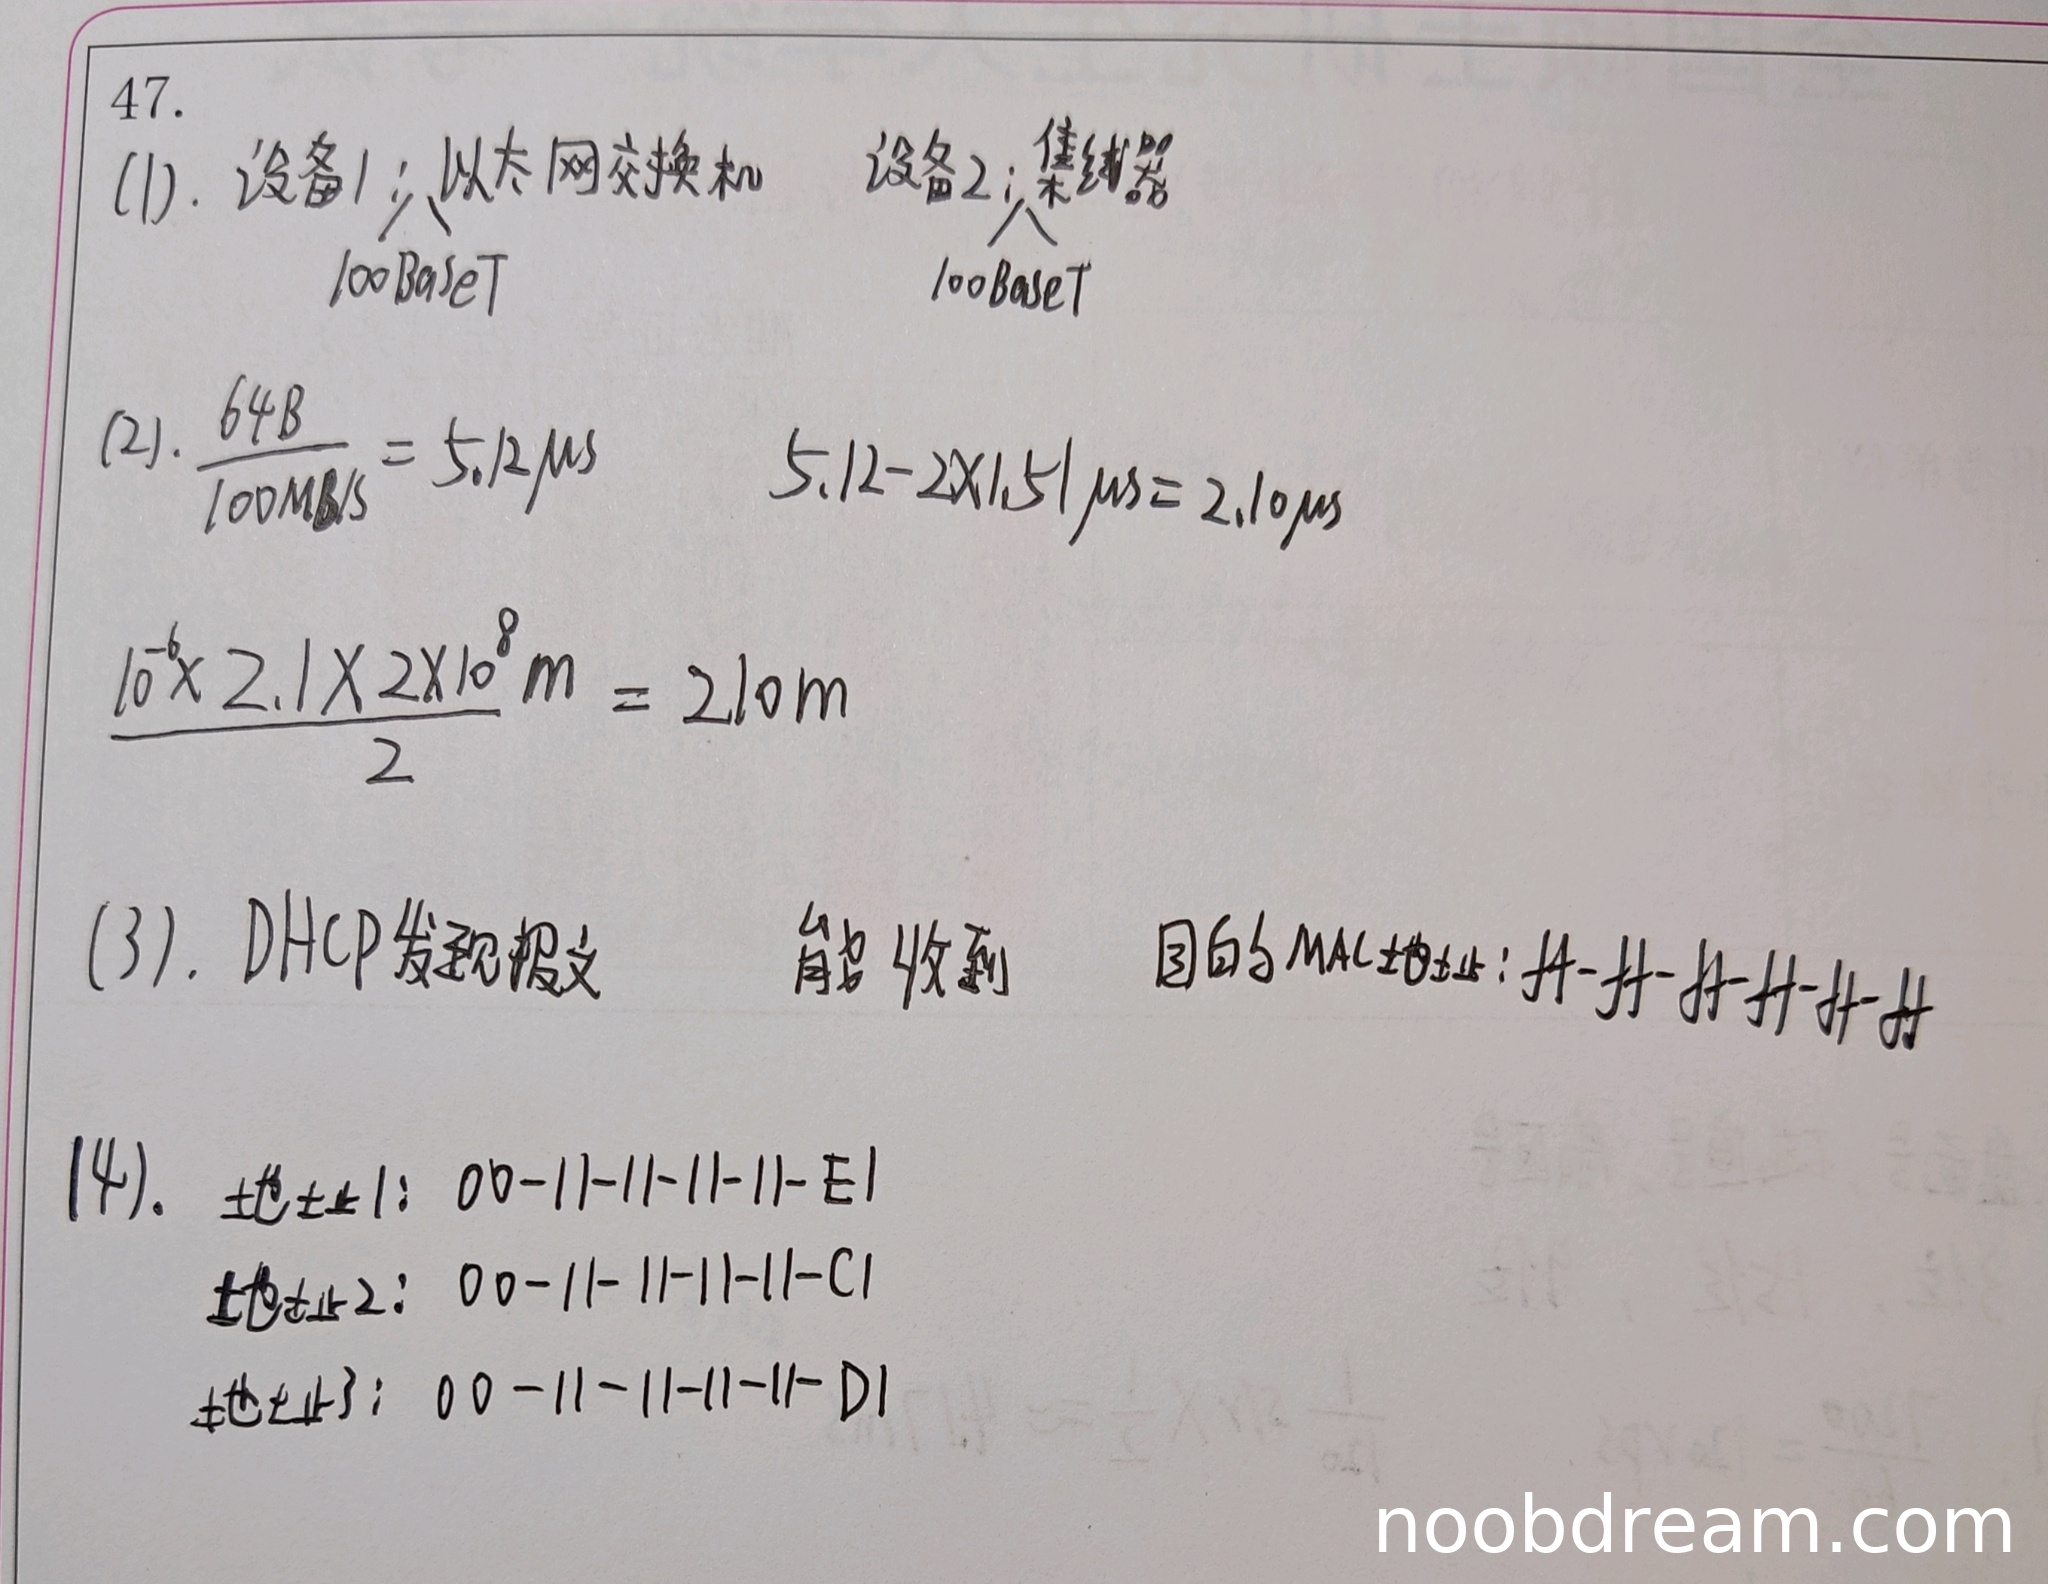 47.
(1). 设备1: 以太网交换机 设备2: 集线器
100BaseT 100BaseT
(2). 64B/100Mb/s = 5.12μs 5.12-2×1.51μs=2.10μs
10⁻⁶×2.1×2×10⁸m/2 = 210m
(3). DHCP发现报文 能收到 目的MAC地址: ff-ff-ff-ff-ff-ff
(4). 地址1: 00-11-11-11-11-E1
地址2: 00-11-11-11-11-C1
地址3: 00-11-11-11-11-D1
noobdream.com